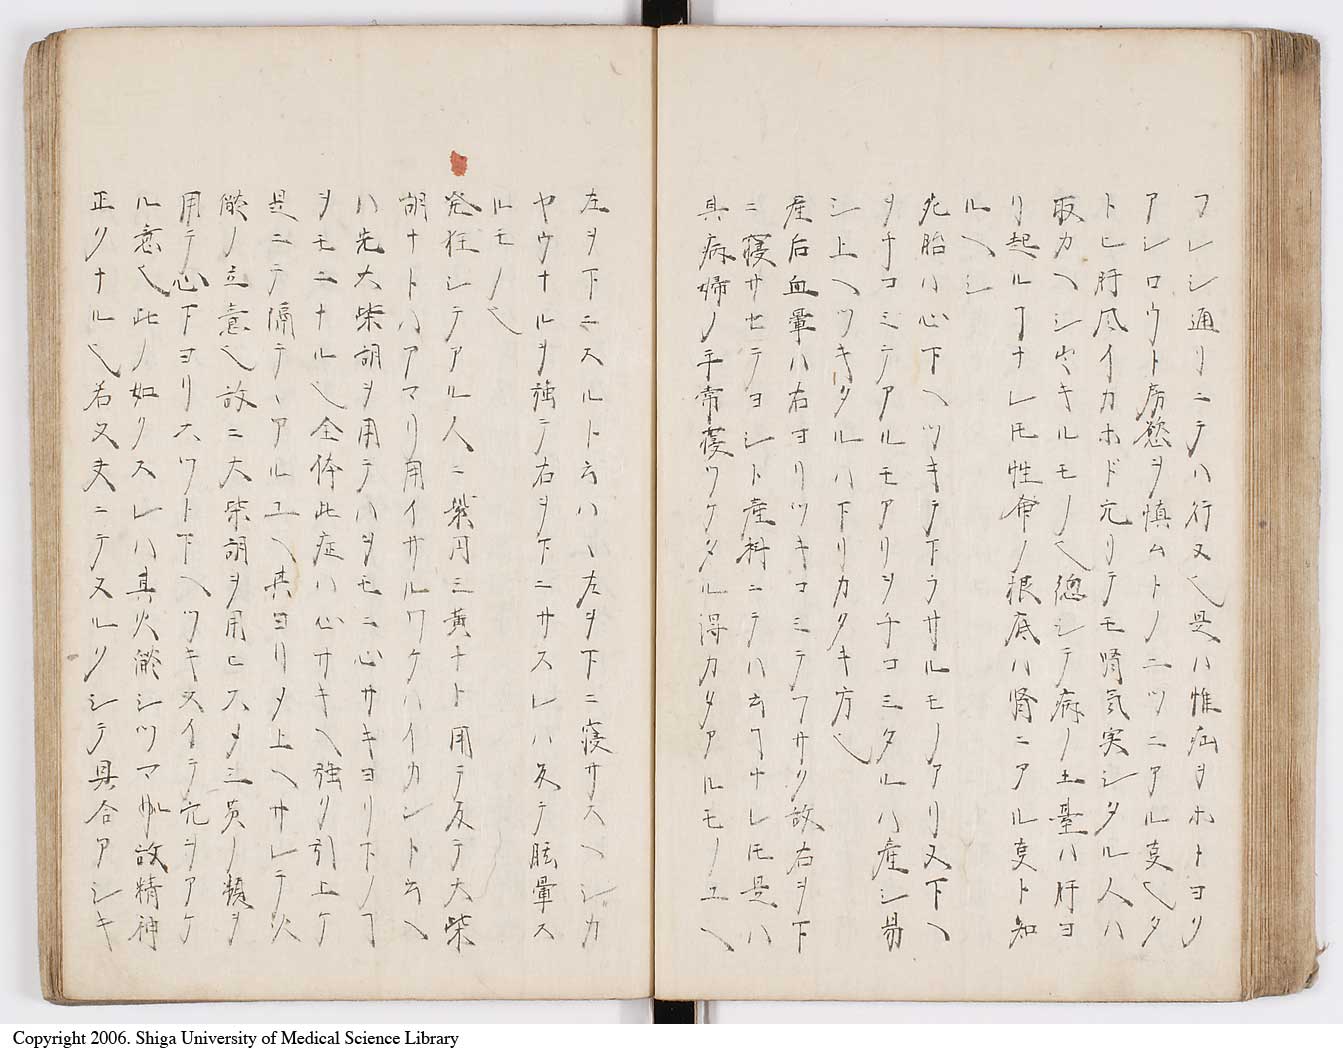 フレシ通リニテハ行又〆是ハ惟疝ヲホトヨク
アシロウト房慾ヲ慎ムトノ二ツニアル𠮷〆タ
トヒ肝凨イカホド亢リテモ腎気実シタル人ハ
取カヘシ安キルモノ〆徳シテ病ノ土臺ハ肝ヨ
リ起ルヿナレ𪜈性命ノ根底ハ腎ニアル叓ト知
ルヘシ
死胎ハ心下ヘツキテ下ラサルモノアリ又下ヘ
ヲチコミテアルモアリヲチコミタルハ産シ易
シ上ヘツキタルハ下リカタキ方〆
産后血暈ハ右ヨリツキコミテフサク故右ヲ下
ニ寝サセテヨシト産科ニテハ云ヿナレ𪜈是ハ
其病婦ノ平常寝ワケタル得カタアルモノユヘ
左ヲ下ニスルト云ハヽ左ヲ下ニ寝サスヘシカ
ヤウナルヲ強テ右ヲ下ニサスレハ反テ眩暈ス
ルモノ〆
発狂シテアル人ニ幾円三黄ナト用テ反テ大柴
胡ナトハアマリ用イサルワケハイカントト云ヘ
ハ先大柴胡ヲ用テハヲモニ心サキヨリ下ノヿ
ヲモニナル〆全体此症ハ心サキヘ強ク引上ケ
是ニテ隔テヽアルユヘ其ヨリメ上ヘサレテ火
欲ノ立意〆故ニ大柴胡ヲ用ヒスメ三黄ノ類ヲ
用テ心下ヨリスウト下ヘツキヌイテ穴ヲアケ
ル意〆此ノ如クスレハ其火欲シツマル故精神
正クナル〆若又夫ニテヌルクシテ具合アシキ
Copyright 2006. Shiga University of Medical Science Library